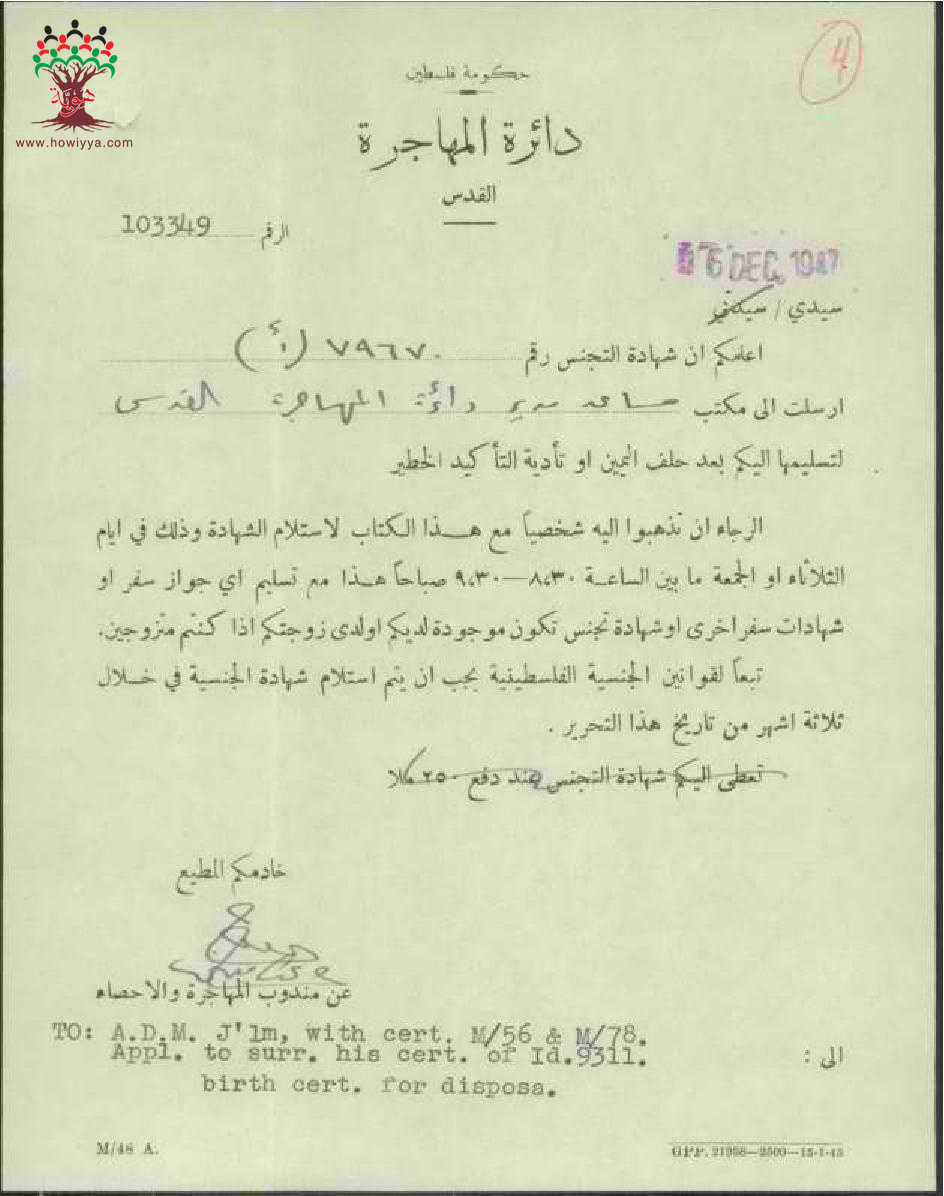 هوية
www.howiyya.com
4
حكومة فلسطين
دائرة المهاجرة
القدس
الرقم 103349
6 DEC 1947
سيدي / سيدتي
اعلمكم ان شهادة التجنس رقم ٧٩٦٧٠ (أ)
ارسلت الى مكتب مساعد مدير دائرة المهاجرة القدس
لتسليمها اليكم بعد حلف اليمين او تأدية التأكيد الخطير
الرجاء ان تذهبوا اليه شخصياً مع هذا الكتاب لاستلام الشهادة وذلك في ايام
الثلاثاء او الجمعة ما بين الساعة ٨،٣٠—٩،٣٠ صباحاً هذا مع تسليم اي جواز سفر او
شهادات سفر اخرى او شهادة تجنس تكون موجودة لديكم او لدى زوجتكم اذا كنتم متزوجين.
تبعاً لقوانين الجنسية الفلسطينية يجب ان يتم استلام شهادة الجنسية في خلال
ثلاثة اشهر من تاريخ هذا التحرير .
تعطى اليكم شهادة التجنس عند دفع ٢٥٠ ملا
خادمكم المطيع
عن مندوب المهاجرة والاحصاء
TO: A.D.M. J'lm, with cert. M/56 & M/78.
الى :
Appl. to surr. his cert. of Id.9311.
birth cert. for disposa.
M/48 A.
GPP. 21958—2500—15-1-45